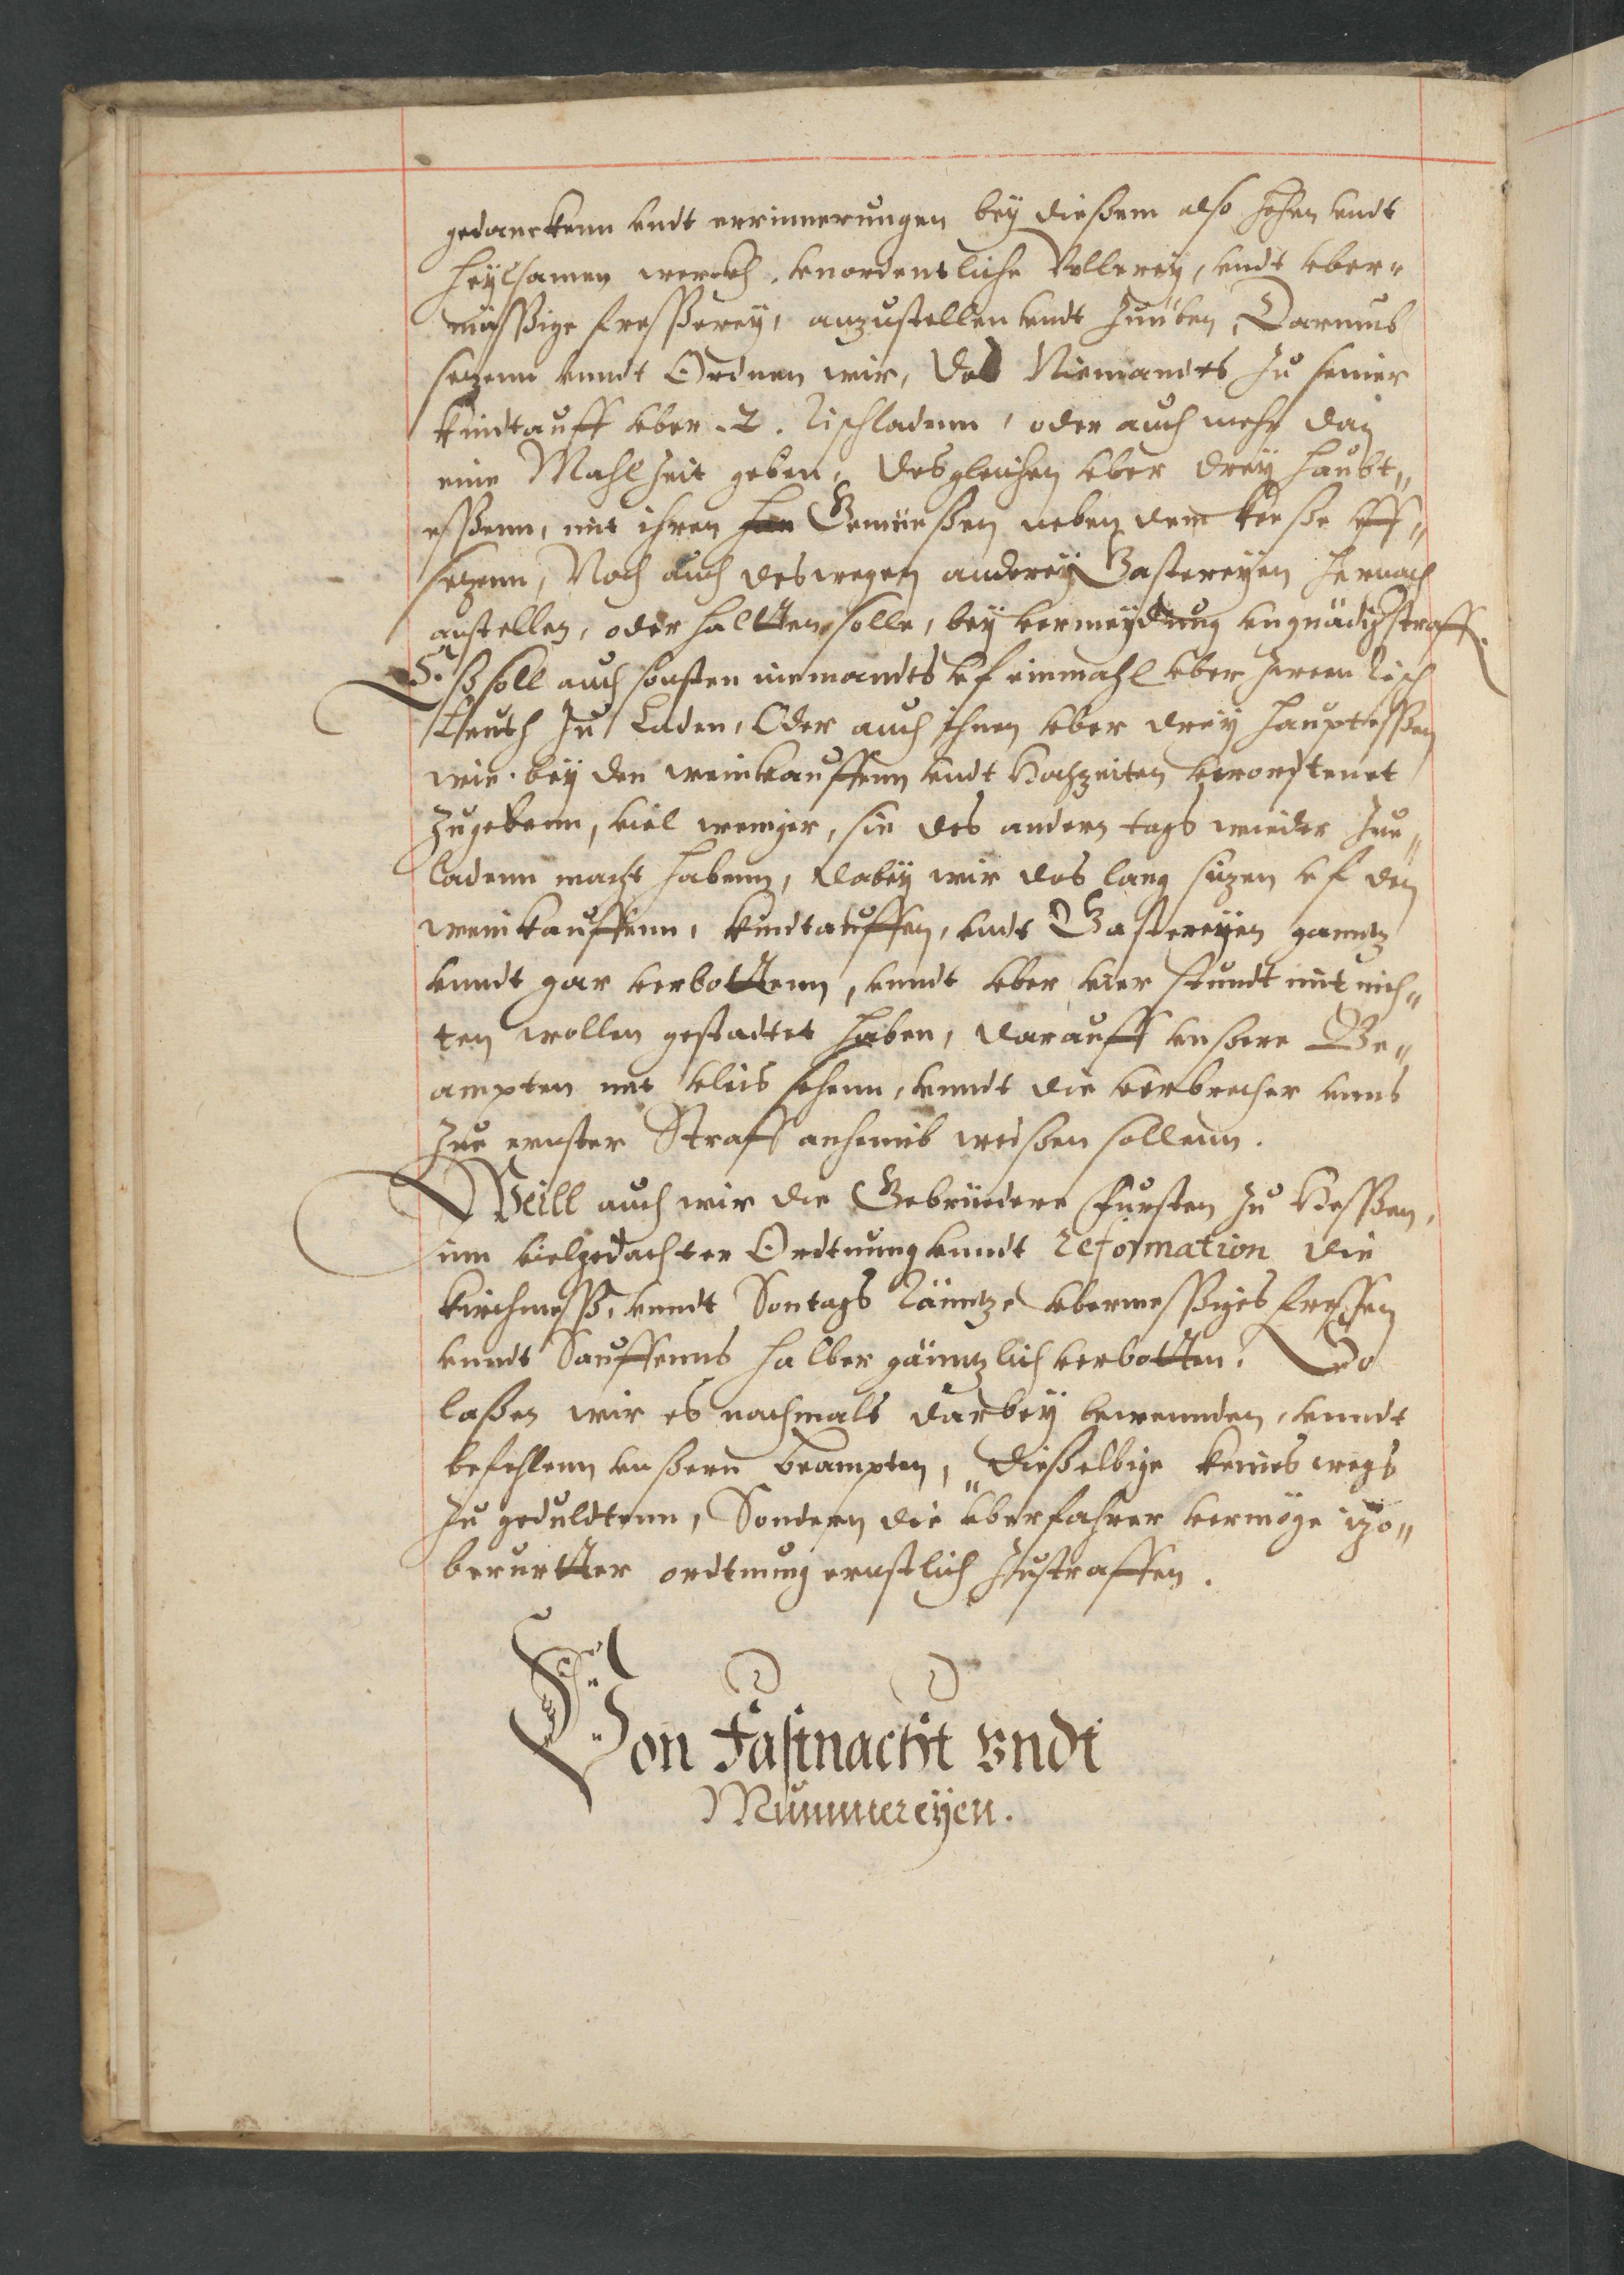 gedanckenn vndt errinnerungen bey dießem also hohen vndt
heylsamen werckh, vnordentliche Vollerey, vndt vber„
mäßßige freßßerey, anzustellen vndt zuüben, Darumb
setzenn vnndt Ordnen wir, das Niemandts zu seiner
kindtauff vber .2. Tisch ladenn, oder auch mehr dan
eine Mahlzeit geben, desgleichen vber drey haubt„
eßßenn, mit ihren Gemüeßen neben dem keeße vff„
setzenn, Noch auch deswegen anderey Gastereyen hernach
anstellen, oder haltten solle, bey vermeydung vngnädig straff.
Eß soll auch sonsten niemandts vf einmahl vber Tisch
Leuth zu Laden, Oder auch ihnen vber drey hauptessen
wie bey den weinkauffenn vndt Hochzeiten verordtenet
zugebenn, viel weniger, sie des andern tags wieder zue„
ladenn macht habenn, dabey wir das lang sitzen vf den
weinkauffenn, kindtauffen, vndt Gastereyen ganntz
vnndt gar verbottenn, vnndt vber vier stundt mit nich„
ten wollen gestadtet haben, darauff vnßere Be„
ampten mit vleis sehenn, vnndt die verbrecher vnns
zue ernster Straff anhemb weißen sollenn.
Weill auch wir die Gebrüedere Fursten zu Heßßen,
inn vielgedachter Ordtnung vnndt reformation die
kirchmeß, vnndt Sontags Tänntze vbermeßßiges fressen
vnndt Sauffenns halber gänntzlich verbotten. So
laßen wir es nachmals darbey bewennden, vnndt
befehlenn vnßern beampten, dießelbige keines wegs
zu geduldtenn, Sondern die vberfahrer vermöge itzo„
berurtter ordtnung ernstlich zustraffen.
Von Fastnacht vndt
Mummereyen.